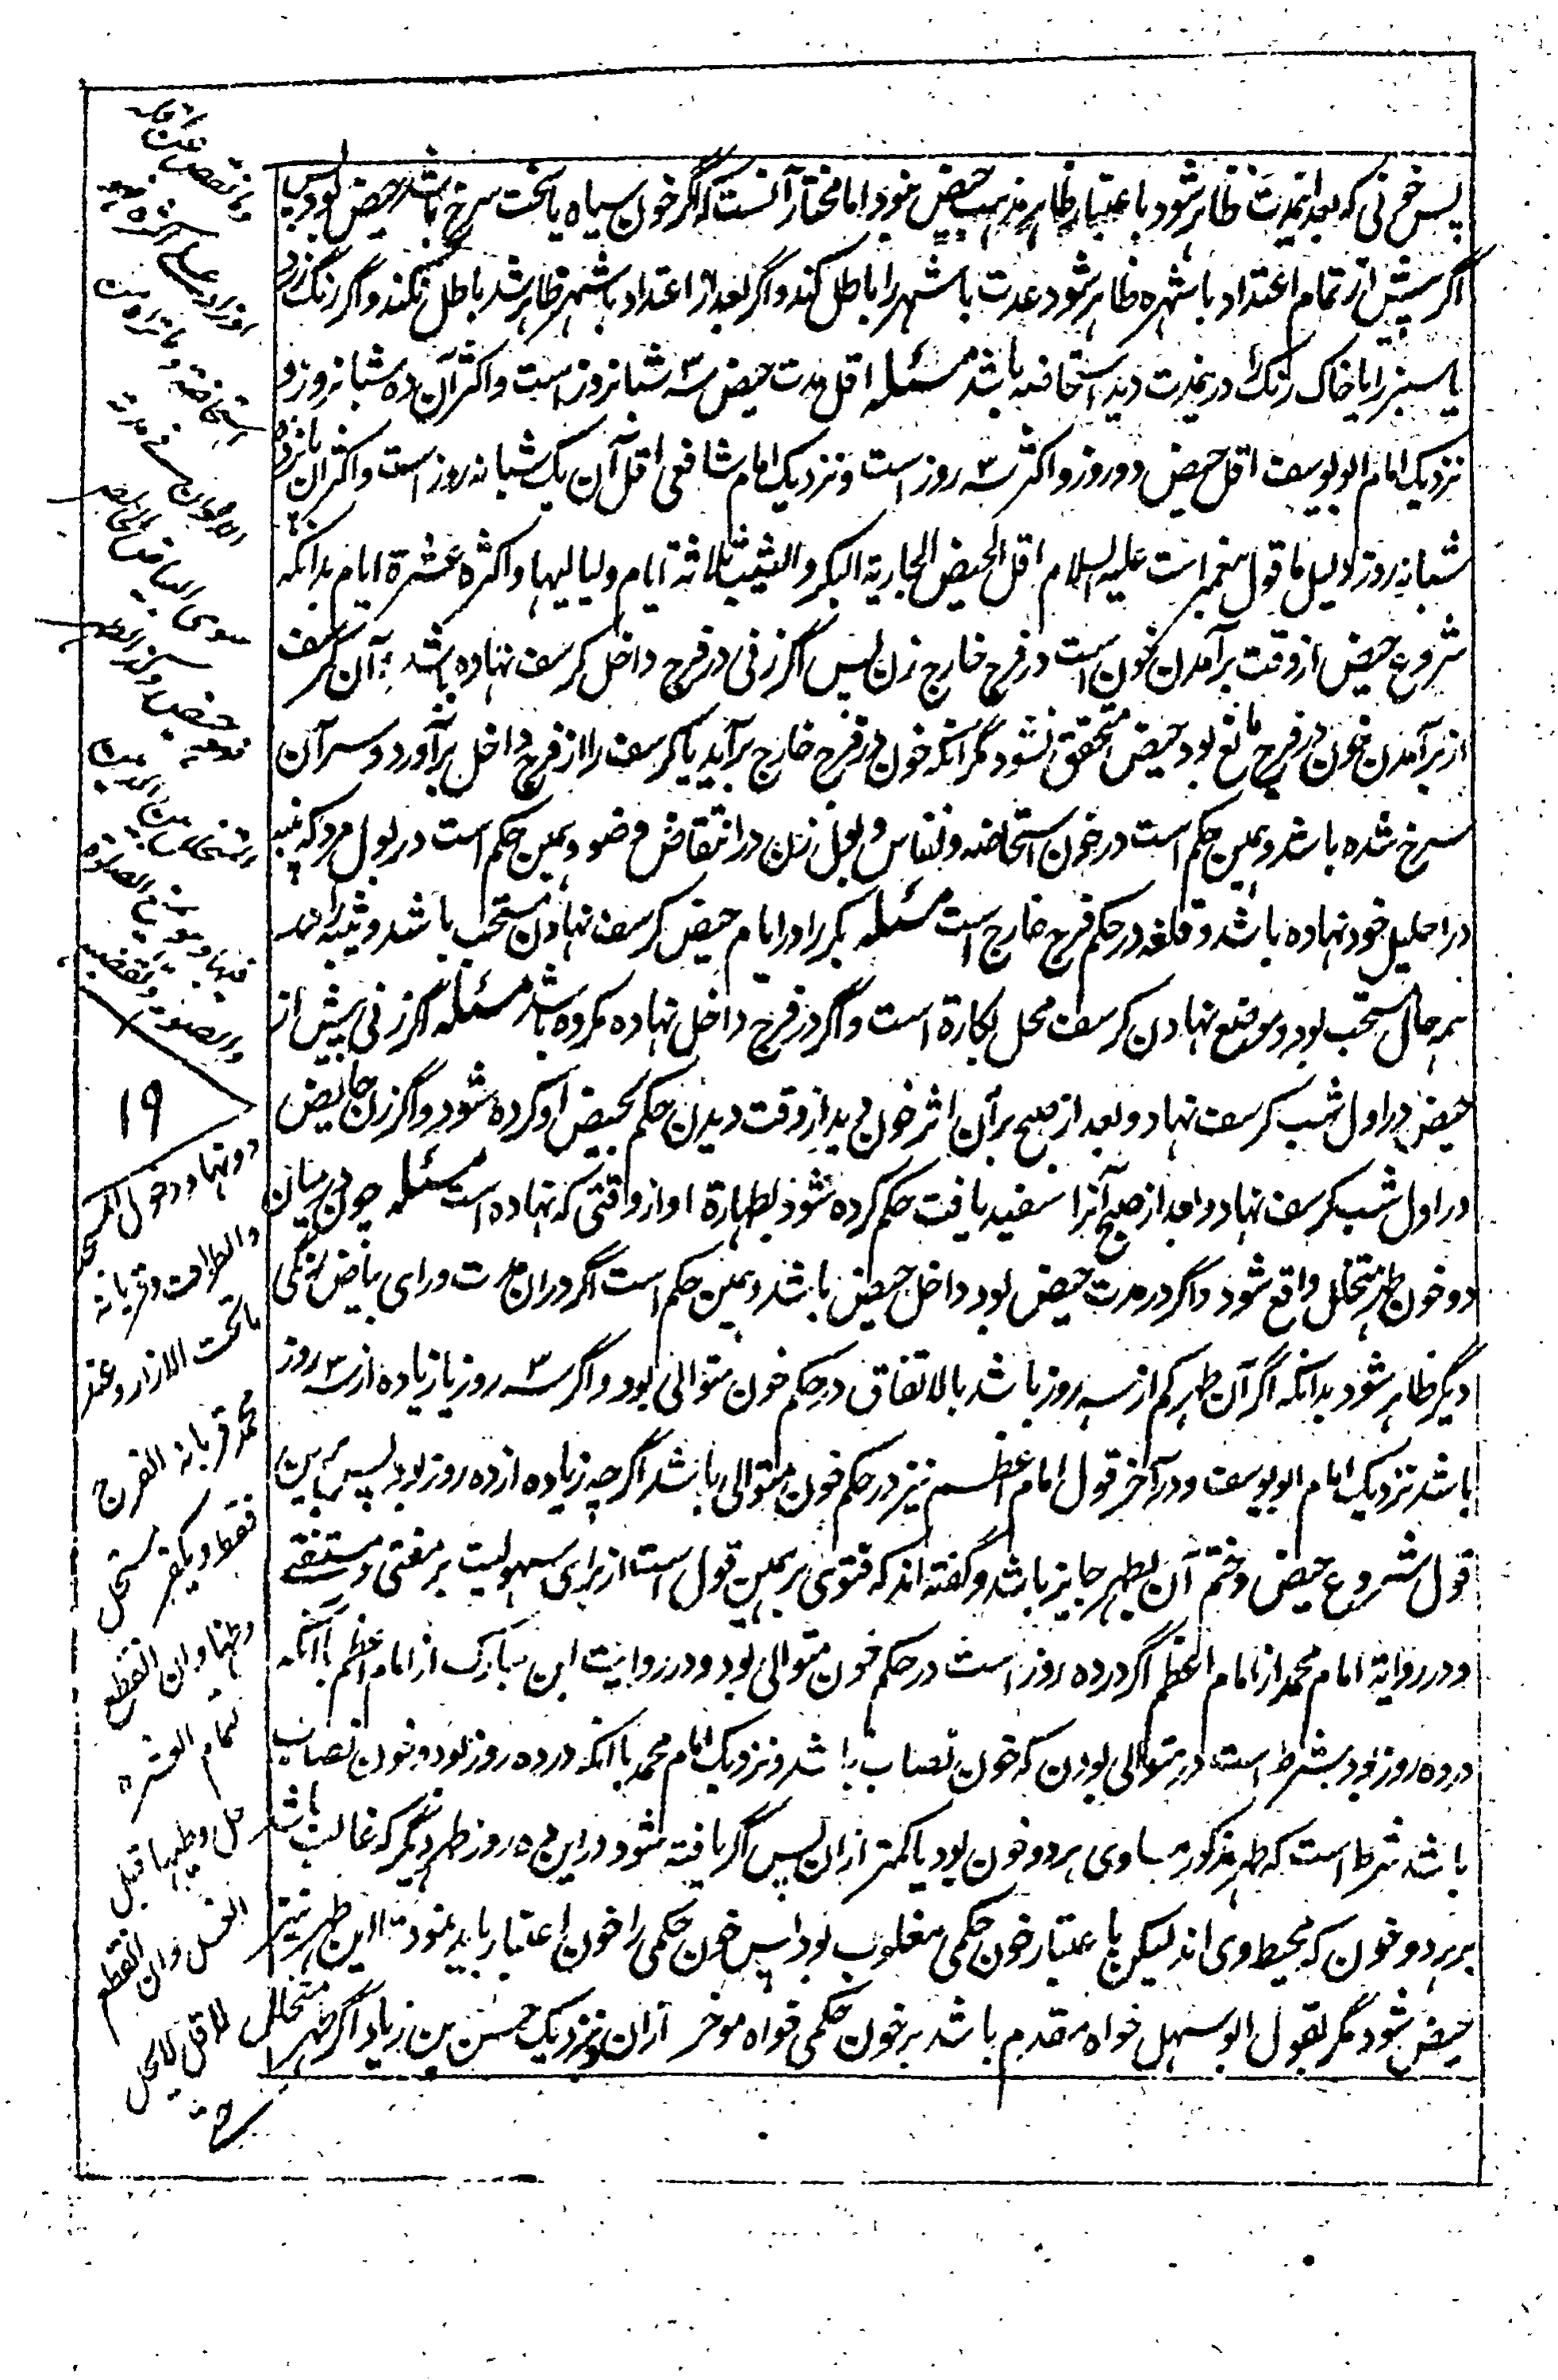 پس خونی که بعد ازین مدت ظاهر شود باعتبار ظاهر مذهب حیض نبود اما مختار آنست که اگر خون سیاه یا سخت سرخ باشد حیض بود پس
اگر پیش از تمام اعتداد باشهر ظاهر شود عدت باشهر را باطل کند و اگر بعد از اعتداد باشهر ظاهر شد باطل نکند و اگر رنگ زرد
یا سبز را یا خاک رنگ را درین مدت دید استحاضه باشد مسئله اقل مدت حیض سه شبانروز است و اکثر آن ده شبانروز و
نزدیک امام ابو یوسف اقل حیض دو روز و اکثر سه روز است و نزدیک امام شافعی اقل آن یک شبانه روز است و اکثر آن پانزده
شبانه روز دلیل ما قول پیغمبر است علیه السلام اقل الحیض الجاریة البکر و الثیب ثلاثة ایام و لیالیها و اکثره عشرة ایام بدانکه
شروع حیض از وقت برآمدن خون است در فرج خارج زن پس اگر زنی در فرج داخل کرسف نهاده باشد آن کرسف
از برآمدن خون در فرج مانع بود حیض متحقق نشود مگر آنکه خون در فرج خارج برآید یا کرسف را از فرج داخل برآورد و سر آن
سرخ شده باشد و همین حکم است در خون استحاضه و نفاس و بول زنان در انتقاض وضو و همین حکم است در بول مرد که پنبه
در احلیل خود نهاده باشد و قلفه در حکم فرج خارج است مسئله بکر را در ایام حیض کرسف نهادن مستحب باشد و ثیبه را در
همه حال مستحب بود و موضع نهادن کرسف محل بکارة است و اگر در فرج داخل نهاده مکروه باشد مسئله اگر زنی پیش از
حیض در اول شب کرسف نهاد و بعد از صبح بر آن اثر خون دید از وقت دیدن حکم بحیض او کرده شود و اگر زن حایض
در اول شب کرسف نهاد و بعد از صبح آنرا سفید یافت حکم کرده شود بطهارة او از وقتی که نهاده است مسئله چون در میان
دو خون طهر متخلل واقع شود و اگر در مدت حیض بود داخل حیض باشد و همین حکم است اگر در آن مدت ورای بیاض رنگی
دیگر ظاهر شود بدانکه اگر آن طهر کم از سه روز باشد بالاتفاق در حکم خون متوالی بود و اگر سه روز یا زیاده از سه روز
باشد نزدیک امام ابو یوسف و در آخر قول امام اعظم نیز در حکم خون متوالی باشد اگر چه زیاده از ده روز بود پس برین
قول شروع حیض و ختم آن بطهر جایز باشد و گفته اند که فتوی بر همین قول است از برای سهولیت بر مفتی و مستفتی
و در روایة امام محمد از امام اعظم اگر در ده روز است در حکم خون متوالی بود و در روایت ابن مبارک از امام اعظم با آنکه
در ده روز بود شرط است در متوالی بودن که خون نصاب باشد و نزدیک امام محمد با آنکه در ده روز بود و خون نصاب
باشد شرط است که طهر مذکور مساوی هر دو خون بود یا کمتر از ان پس اگر یافته شود در این ده روز طهر دیگر که غالب باشد
بر هر دو خون که محیط وی اند لیکن باعتبار خون حکمی مغلوب بود پس خون حکمی را خون اعتبار باید نمود تا این طهر نیز
حیض شود مگر بقول ابو سهل خواه مقدم باشد بر خون حکمی خواه موخر از ان و نزدیک حسن بن زیاد اگر طهر متخلل
۱۹
دونها و دخول المسجد
والطواف و قربانه
ماتحت الازار و عند
محمد قربانه الفرج
فقط و یکفر مستحل
وطیها و ان انقطع
لتمام العشرة
حل وطیها قبل
الغسل و ان انقطع
لاقل لا یحل
حتی